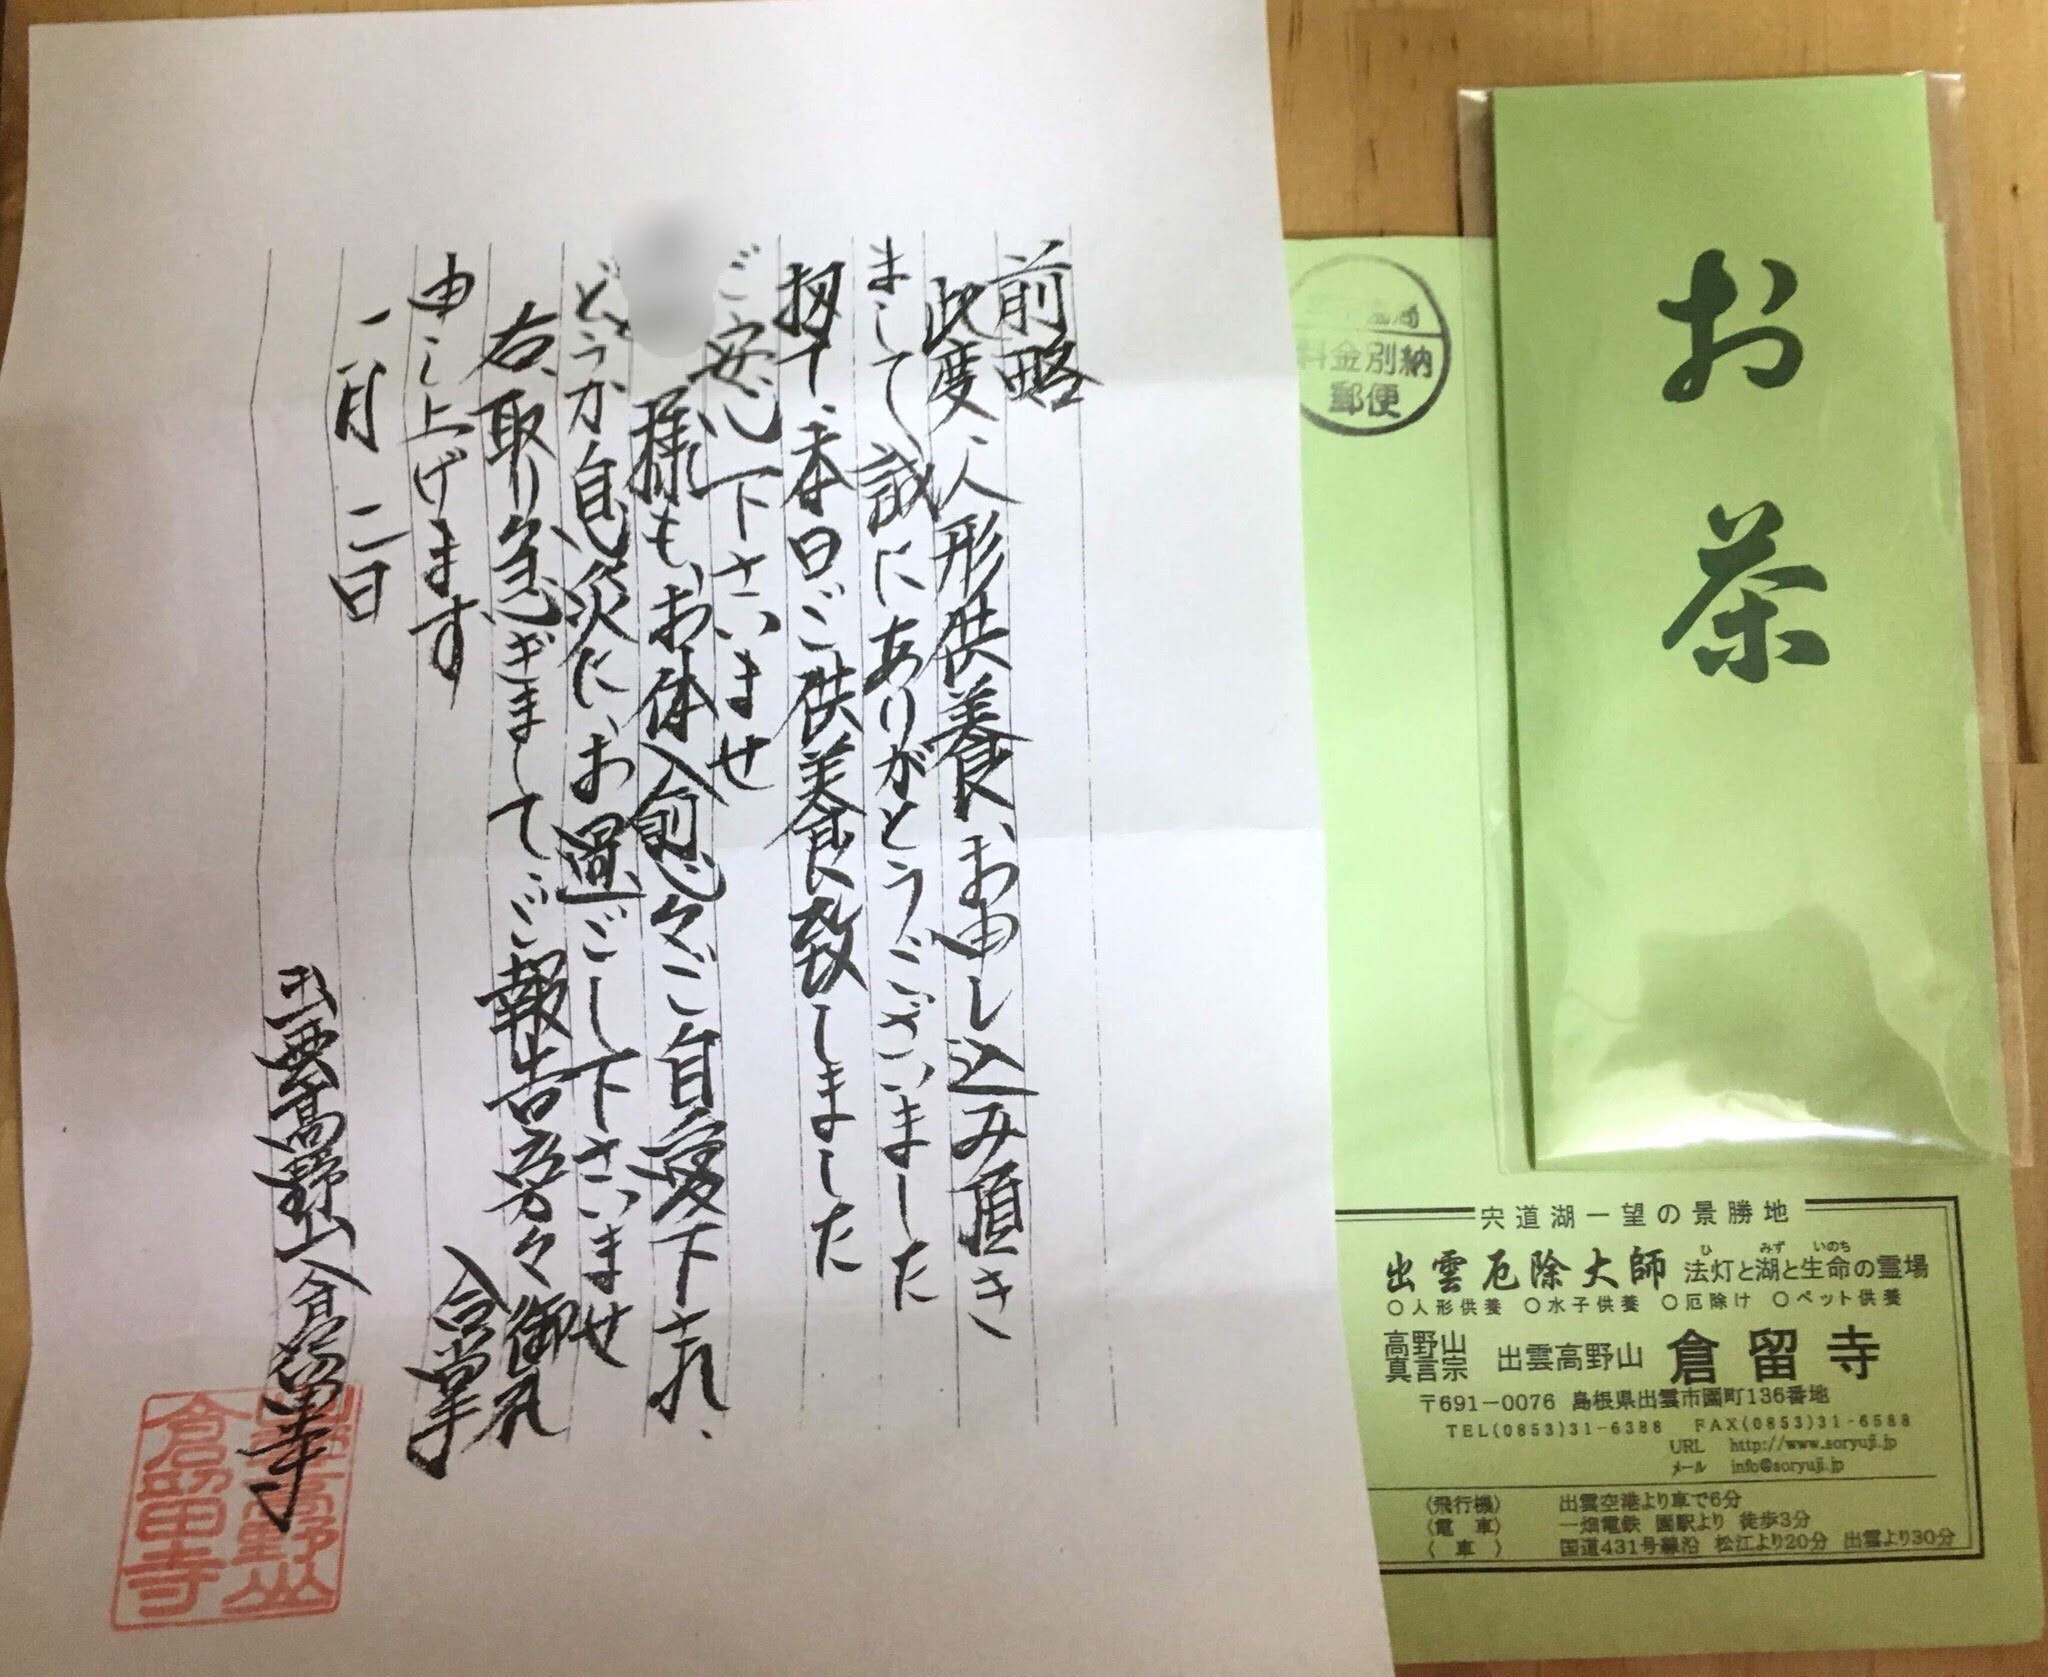 前略
此度、人形供養、お申し込み頂き
まして、誠にありがとうございました
扨て、本日ご供養致しました
ご安心下さいませ
様も、お体愈々ご自愛下され、
どうか息災に、お過ごし下さいませ
右、取り急ぎまして、ご報告旁々御礼
申し上げます
合掌
一月二日
出雲高野山倉留寺
出雲高野山
倉留寺
お茶
料金別納
郵便
宍道湖一望の景勝地
出雲厄除大師 法灯と湖と生命の霊場
ひ みず いのち
○人形供養 ○水子供養 ○厄除け ○ペット供養
高野山
真言宗 出雲高野山 倉留寺
〒691-0076 島根県出雲市園町136番地
TEL(0853)31-6388 FAX(0853)31-6588
URL http://www.soryuji.jp
メール info@soryuji.jp
〈飛行機〉 出雲空港より車で6分
〈電車〉 一畑電鉄 園駅より 徒歩3分
〈車〉 国道431号線沿 松江より20分 出雲より30分